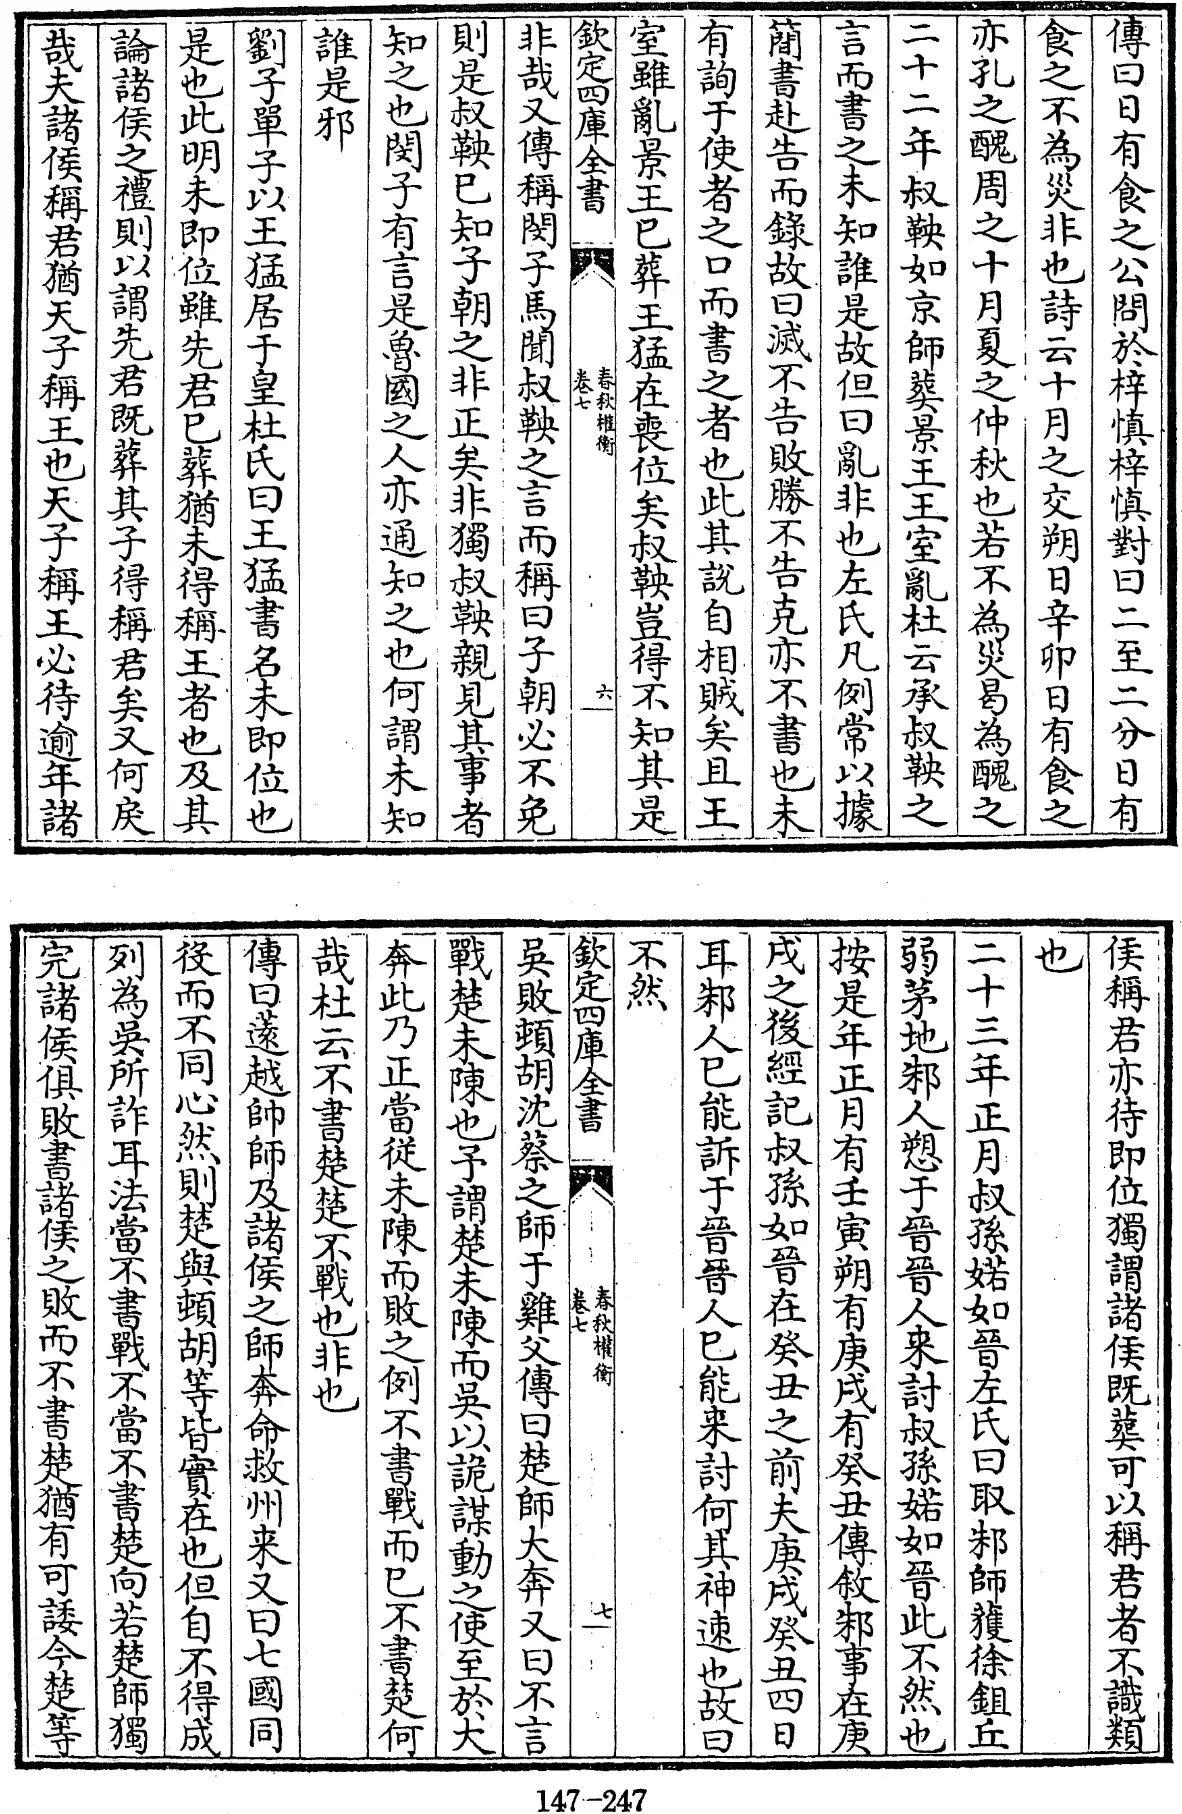 傳曰日有食之公問於梓慎梓慎對曰二至二分日有
食之不為災非也詩云十月之交朔日辛卯日有食之
亦孔之醜周之十月夏之仲秋也若不為災曷為醜之
二十二年叔鞅如京師葬景王王室亂杜云承叔鞅之
言而書之未知誰是故但曰亂非也左氏凡例常以據
簡書赴告而錄故曰滅不告敗勝不告克亦不書也未
有詢于使者之口而書之者也此其說自相賊矣且王
室雖亂景王已葬王猛在喪位矣叔鞅豈得不知其是
欽定四庫全書
春秋權衡
卷七
六
非哉又傳稱閔子馬聞叔鞅之言而稱曰子朝必不免
則是叔鞅已知子朝之非正矣非獨叔鞅親見其事者
知之也閔子有言是魯國之人亦通知之也何謂未知
誰是邪
劉子單子以王猛居于皇杜氏曰王猛書名未即位也
是也此明未即位雖先君已葬猶未得稱王者也及其
論諸侯之禮則以謂先君既葬其子得稱君矣又何戾
哉夫諸侯稱君猶天子稱王也天子稱王必待逾年諸
侯稱君亦待即位獨謂諸侯既葬可以稱君者不識類
也
二十三年正月叔孫婼如晉左氏曰取邾師獲徐鉏丘
弱茅地邾人愬于晉晉人来討叔孫婼如晉此不然也
按是年正月有壬寅朔有庚戌有癸丑傳敘邾事在庚
戌之後經記叔孫如晉在癸丑之前夫庚戌癸丑四日
耳邾人已能訴于晉晉人已能来討何其神速也故曰
不然
欽定四庫全書
春秋權衡
卷七
七
吳敗頓胡沈蔡之師于雞父傳曰楚師大奔又曰不言
戰楚未陳也予謂楚未陳而吳以詭謀動之使至於大
奔此乃正當從未陳而敗之例不書戰而已不書楚何
哉杜云不書楚楚不戰也非也
傳曰薳越帥師及諸侯之師奔命救州来又曰七國同
役而不同心然則楚與頓胡等皆實在也但自不得成
列為吳所詐耳法當不書戰不當不書楚向若楚師獨
完諸侯俱敗書諸侯之敗而不書楚猶有可諉今楚等
147-247